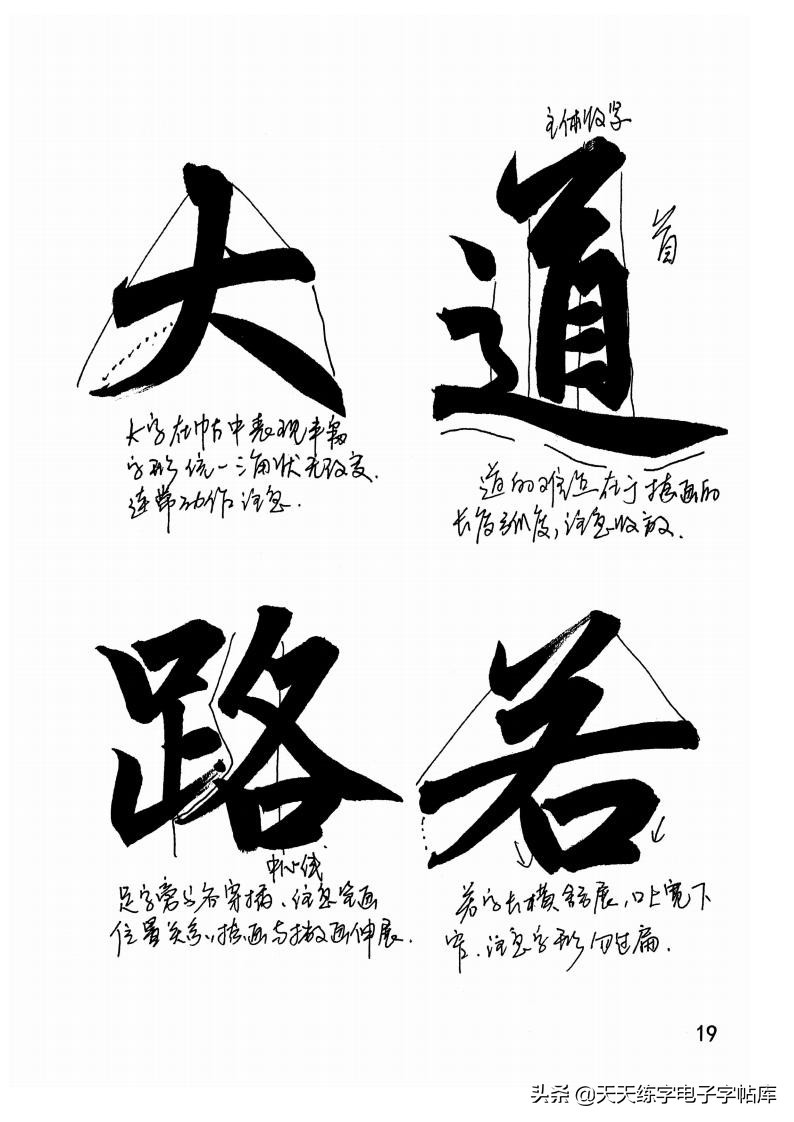 主体收紧
大
道
首
大字在帖中表现丰富
字形统一三角状无改变.
连带动作注意.
道的难点在于捺画的
长度弧度,注意收放.
路
若
中心线
足字旁与各穿插、注意笔画
位置关系、捺画与撇画伸展.
若字长横舒展,口上宽下
窄.注意字形勿过扁.
19
头条 @天天练字电子字帖库